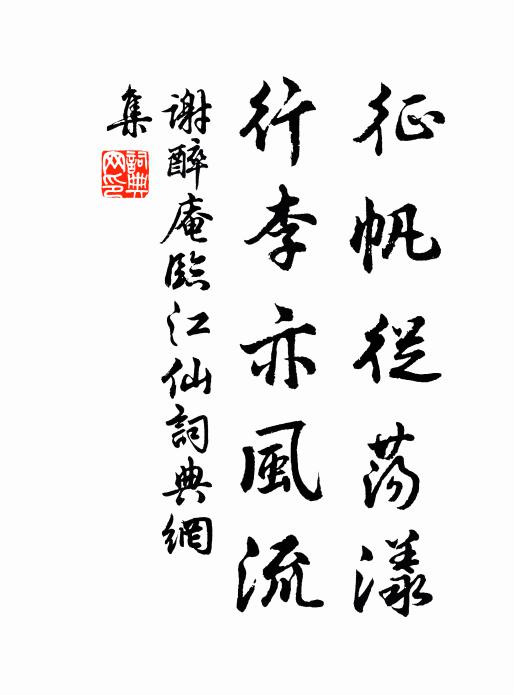 征帆從蕩漾
行李亦風流
謝醉庵臨江仙詞典網
集
詞典
网印